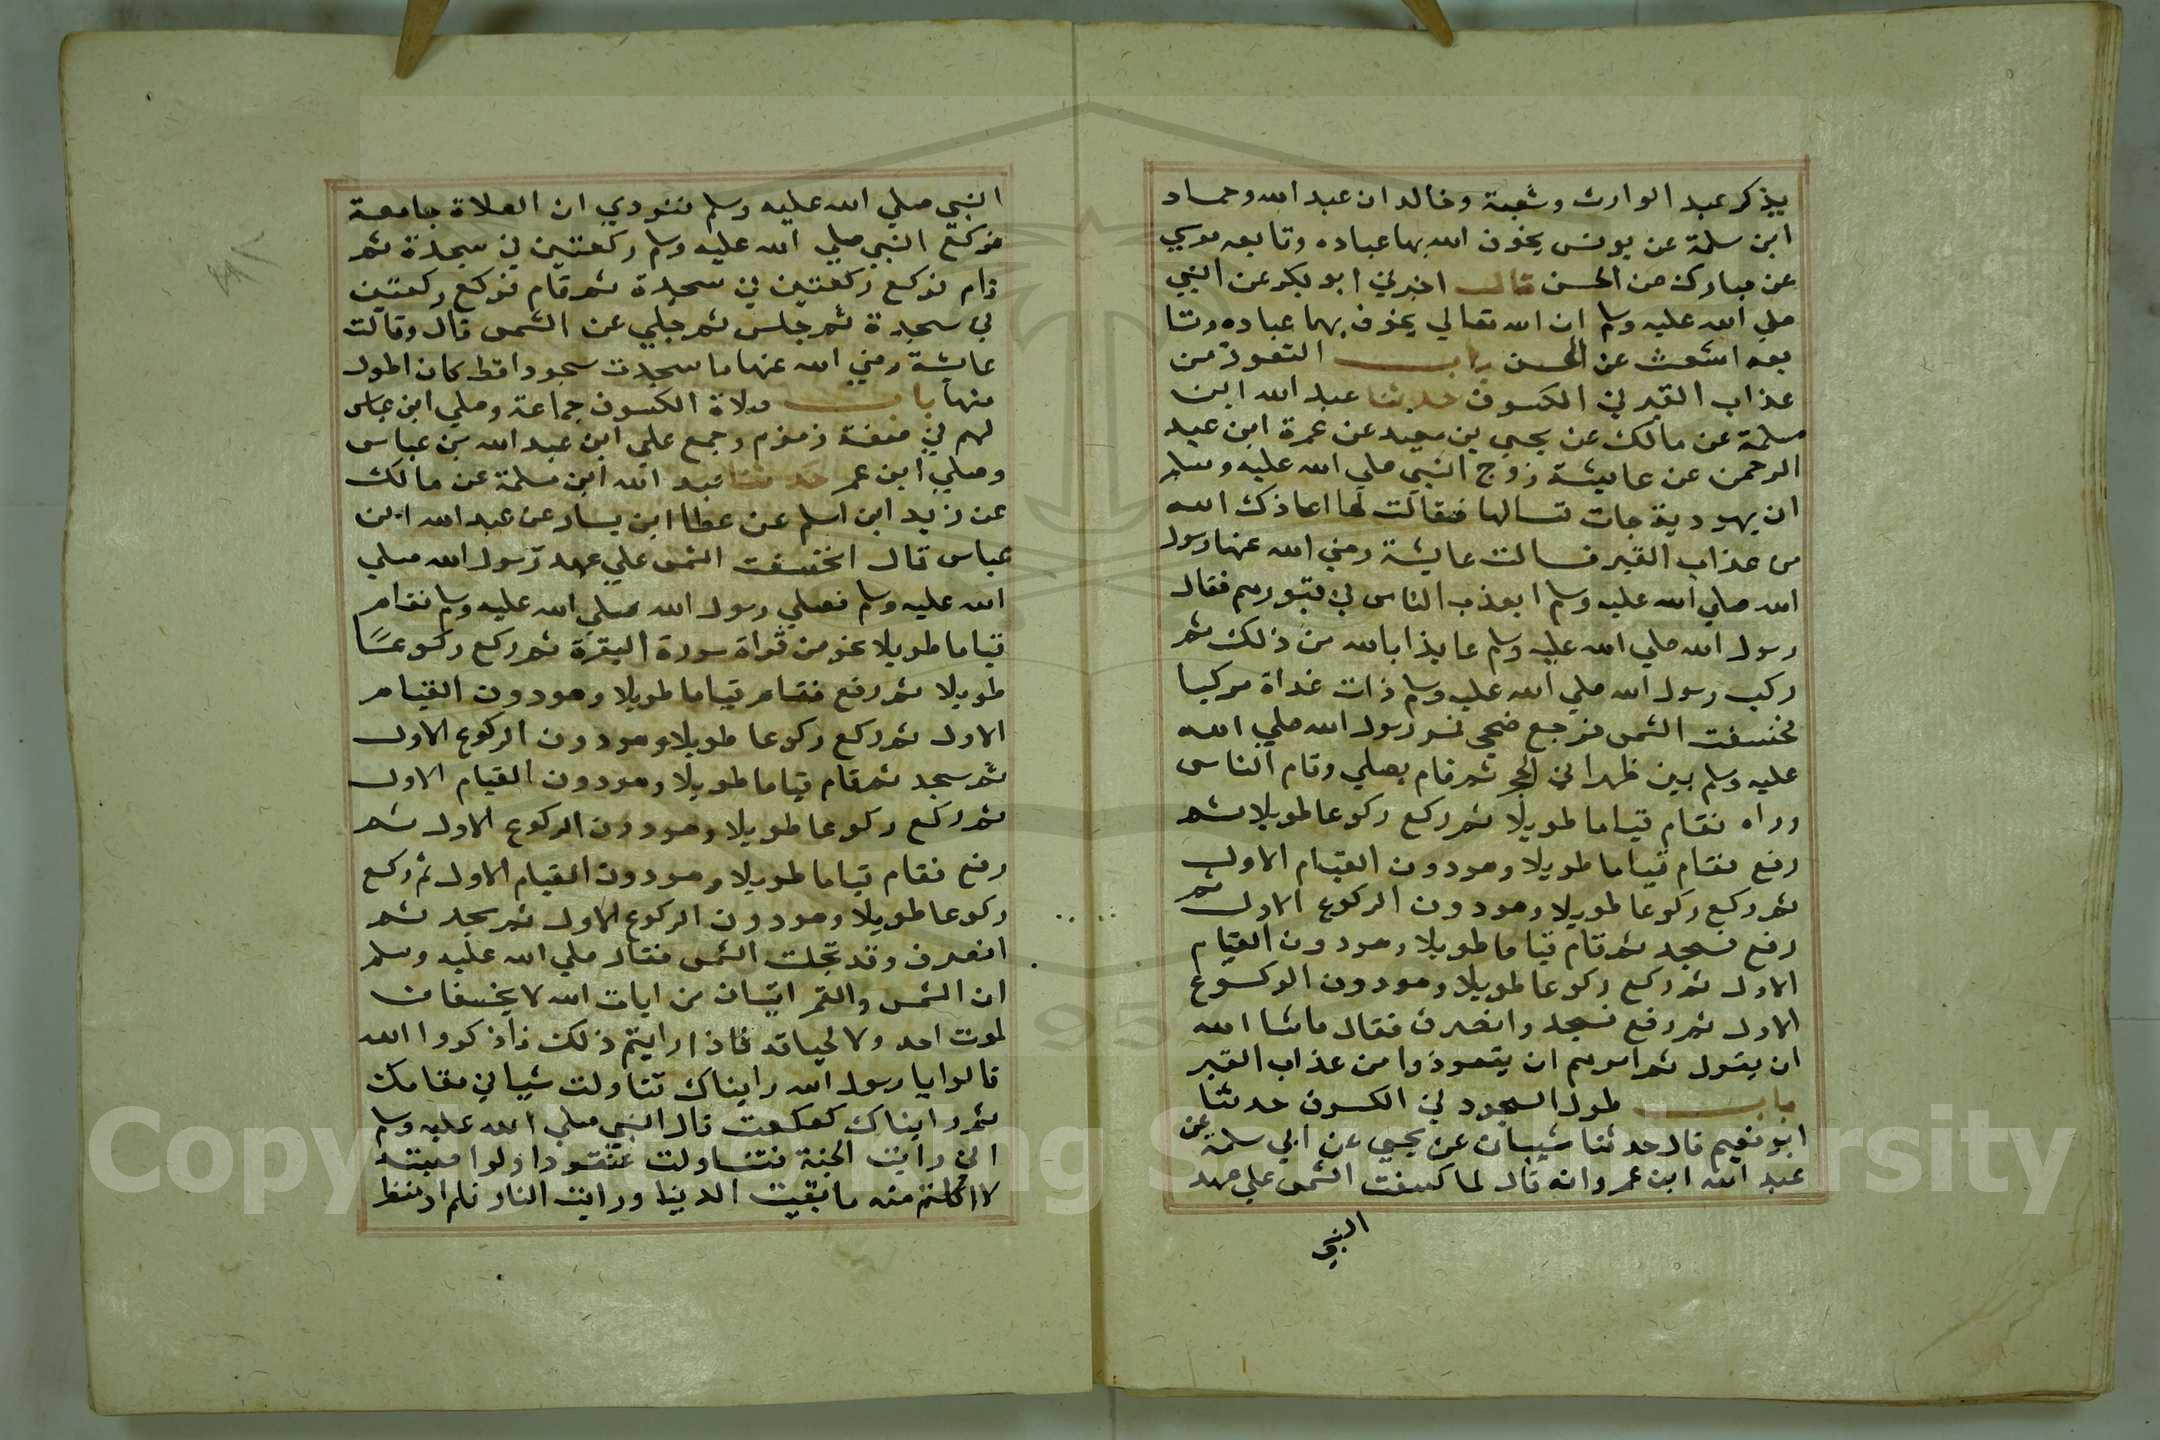 يذكر عبد الوارث وشعبة وخالد ان عبد الله وحماد
ابن سلمة عن يونس يخوف الله بها عباده وتابعه موسي
عن مبارك عن الحسن قال اخبرني ابو بكر عن النبي
صلي الله عليه وسلم ان الله تعالي يخوف بهما عباده وتا
بعه اشعث عن الحسن باب التعوذ من
عذاب القبر في الكسوف حدثنا عبد الله ابن
مسلمة عن مالك عن يحيي بن سعيد عن عمرة ابن عبد
الرحمن عن عايشة زوج النبي صلي الله عليه وسلم
ان يهودية جات تسالها فقالت لها اعاذك الله
من عذاب القبر فسالت عايشة رضي الله عنها رسول
الله صلي الله عليه وسلم ايعذب الناس في قبورهم فقال
رسول الله صلي الله عليه وسلم عايذا بالله من ذلك ثم
ركب رسول الله صلي الله عليه وسلم ذات غداة مركبا
فخسفت الشمس فرجع ضحي فمر رسول الله صلي الله
عليه وسلم بين ظهراني الحجر ثم قام يصلي وقام الناس
وراه فقام قياما طويلا ثم ركع ركوعا طويلا ثم
رفع فقام قياما طويلا وهو دون القيام الاول
ثم ركع ركوعا طويلا وهو دون الركوع الاول ثم
رفع فسجد ثم قام قياما طويلا وهو دون القيام
الاول ثم ركع ركوعا طويلا وهو دون الركوع
الاول ثم رفع فسجد وانصرف فقال ماشا الله
ان يقول ثم امرهم ان يتعوذوا من عذاب القبر
باب طول السجود في الكسوف حدثنا
ابو نعيم قال حدثنا شيبان عن يحيي عن ابي سلمة عن
عبد الله ابن عمرو انه قال لما كسفت الشمس علي عهد
النبي
النبي صلي الله عليه وسلم فنودي ان الصلاة جامعة
فركع النبي صلي الله عليه وسلم ركعتين في سجدة ثم
قام فركع ركعتين في سجدة ثم قام فركع ركعتين
في سجدة ثم جلس ثم جلي عن الشمس قال وقالت
عايشة رضي الله عنها ما سجدت سجودا قط كان اطول
منها باب صلاة الكسوف جماعة وصلي ابن عباس
لهم في صفة زمزم وجمع علي ابن عبد الله بن عباس
وصلي ابن عمر حدثنا عبد الله ابن مسلمة عن مالك
عن زيد ابن اسلم عن عطا ابن يسار عن عبد الله ابن
عباس قال انخسفت الشمس علي عهد رسول الله صلي
الله عليه وسلم فصلي رسول الله صلي الله عليه وسلم فقام
قياما طويلا نحو من قراة سورة البقرة ثم ركع ركوعًا
طويلا ثم رفع فقام قياما طويلا وهو دون القيام
الاول ثم ركع ركوعا طويلا وهو دون الركوع الاول
ثم سجد ثم قام قياما طويلا وهو دون القيام الاول
ثم ركع ركوعا طويلا وهو دون الركوع الاول ثم
رفع فقام قياما طويلا وهو دون القيام الاول ثم ركع
ركوعا طويلا وهو دون الركوع الاول ثم سجد ثم
انصرف وقد تجلت الشمس فقال صلي الله عليه وسلم
ان الشمس والقمر ايتان من ايات الله لا يخسفان
لموت احد ولا لحياته فاذا رايتم ذلك فاذكروا الله
قالوا يا رسول الله رايناك تناولت شيا في مقامك
ثم رايناك كعكعت قال النبي صلي الله عليه وسلم
اني رايت الجنة فتناولت عنقودا ولو اصبته
لاكلتم منه ما بقيت الدنيا ورايت النار فلم ار منظ
Copyright © King Saud University